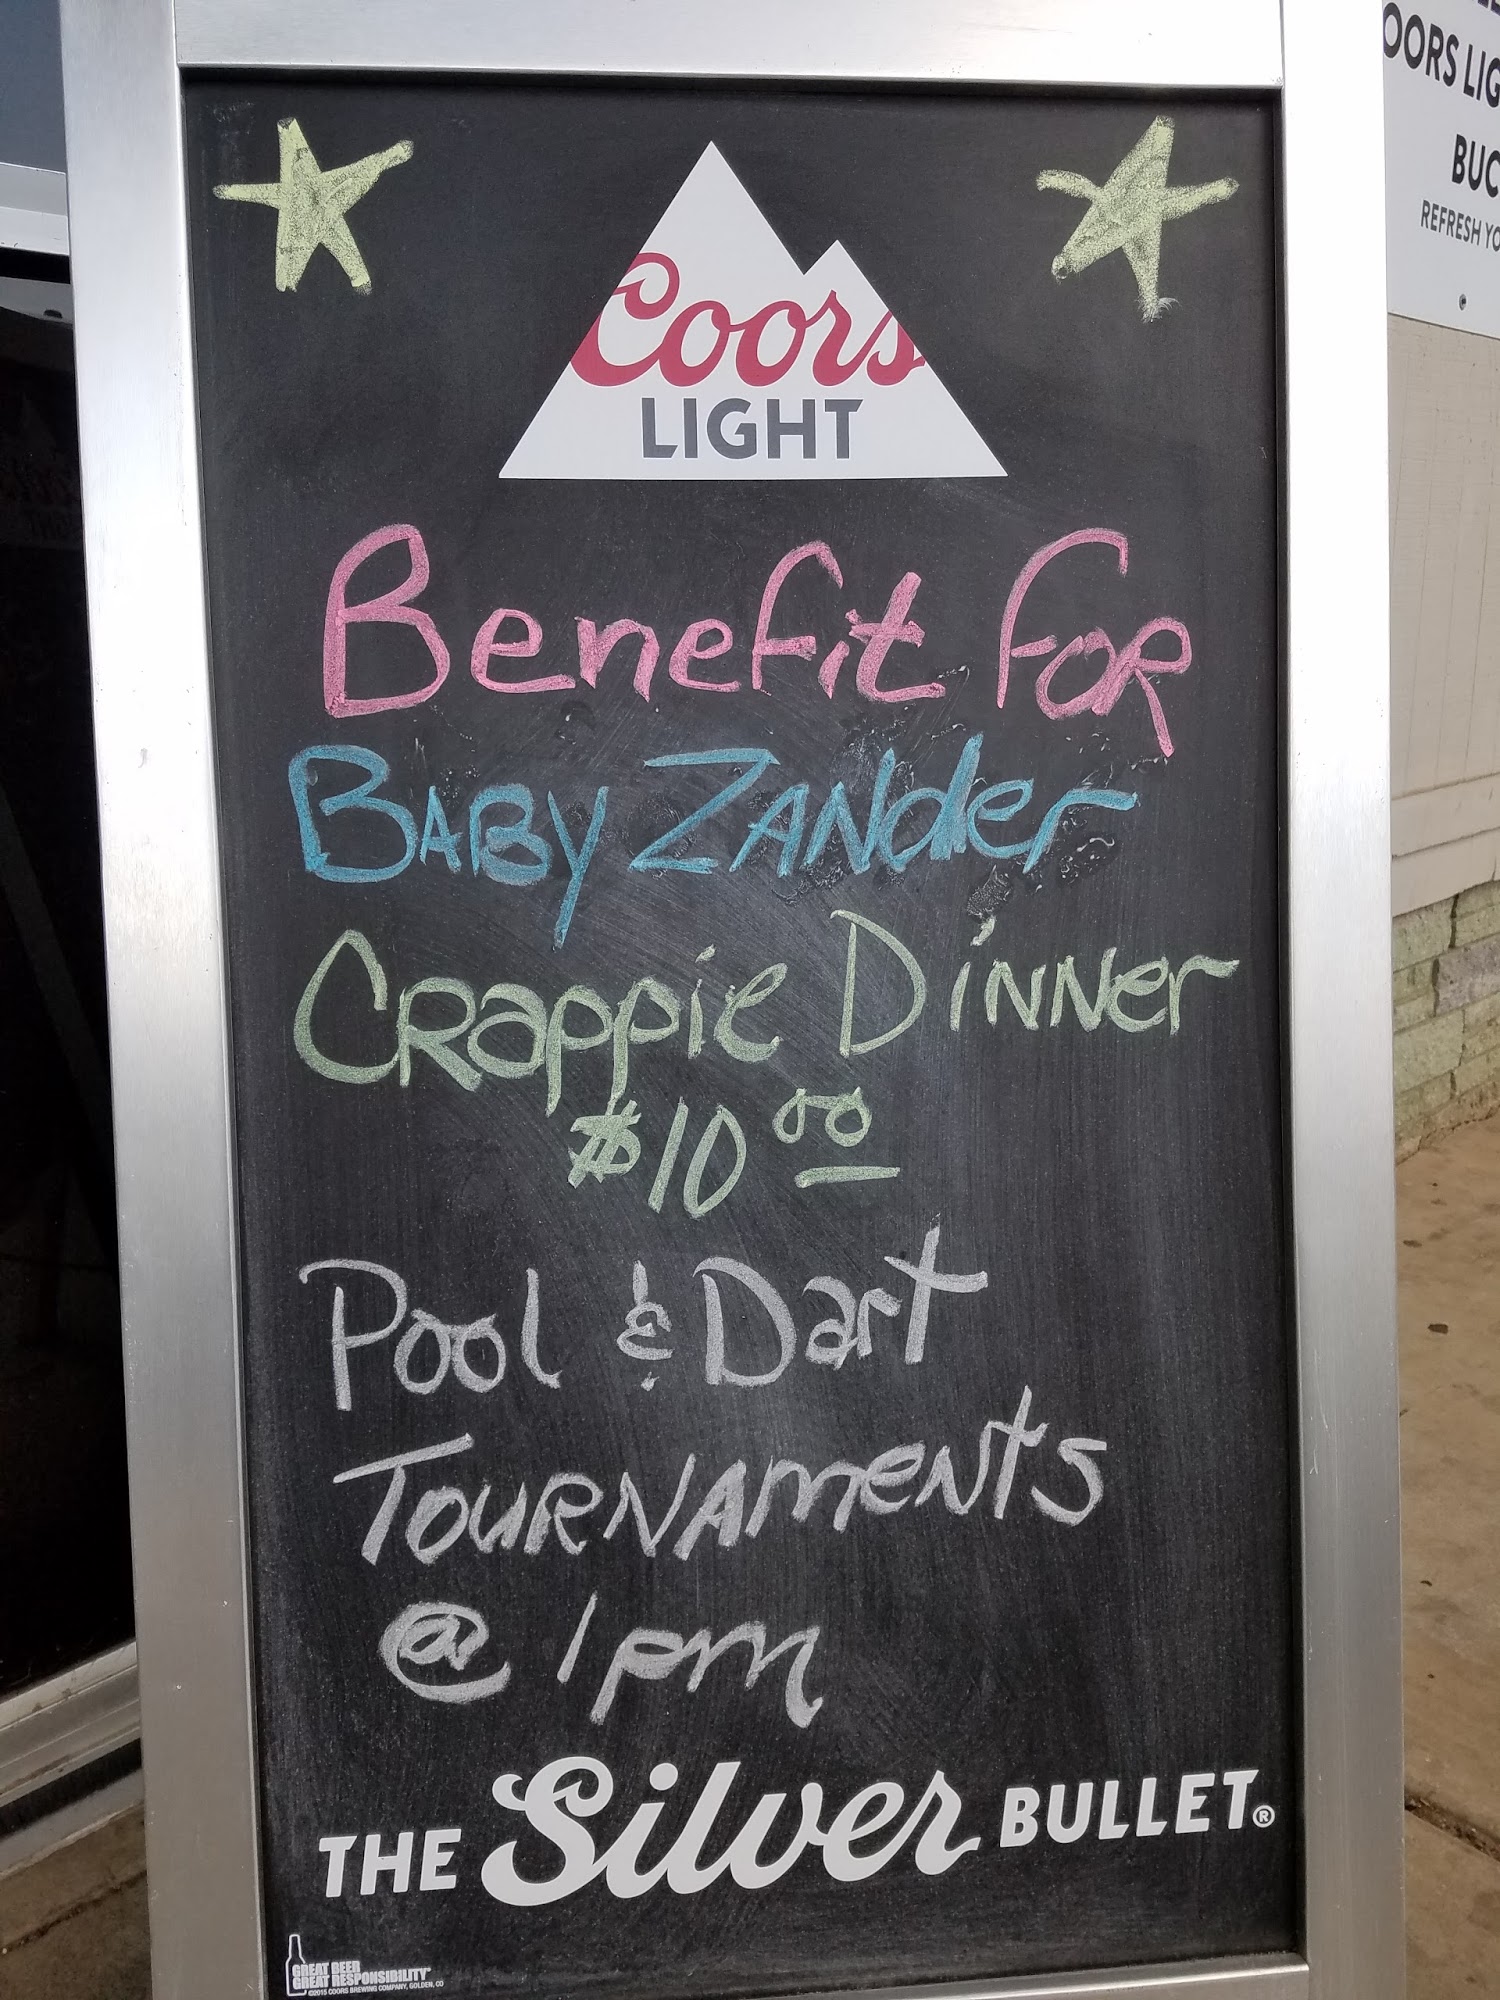 Coors
LIGHT
Benefit for
Baby Zander
Crappie Dinner
$10 00
Pool & Dart
Tournaments
@ 1pm
THE Silver BULLET®
GREAT BEER
GREAT RESPONSIBILITY®
©2015 COORS BREWING COMPANY, GOLDEN, CO
OORS LIG
BUC
REFRESH YO